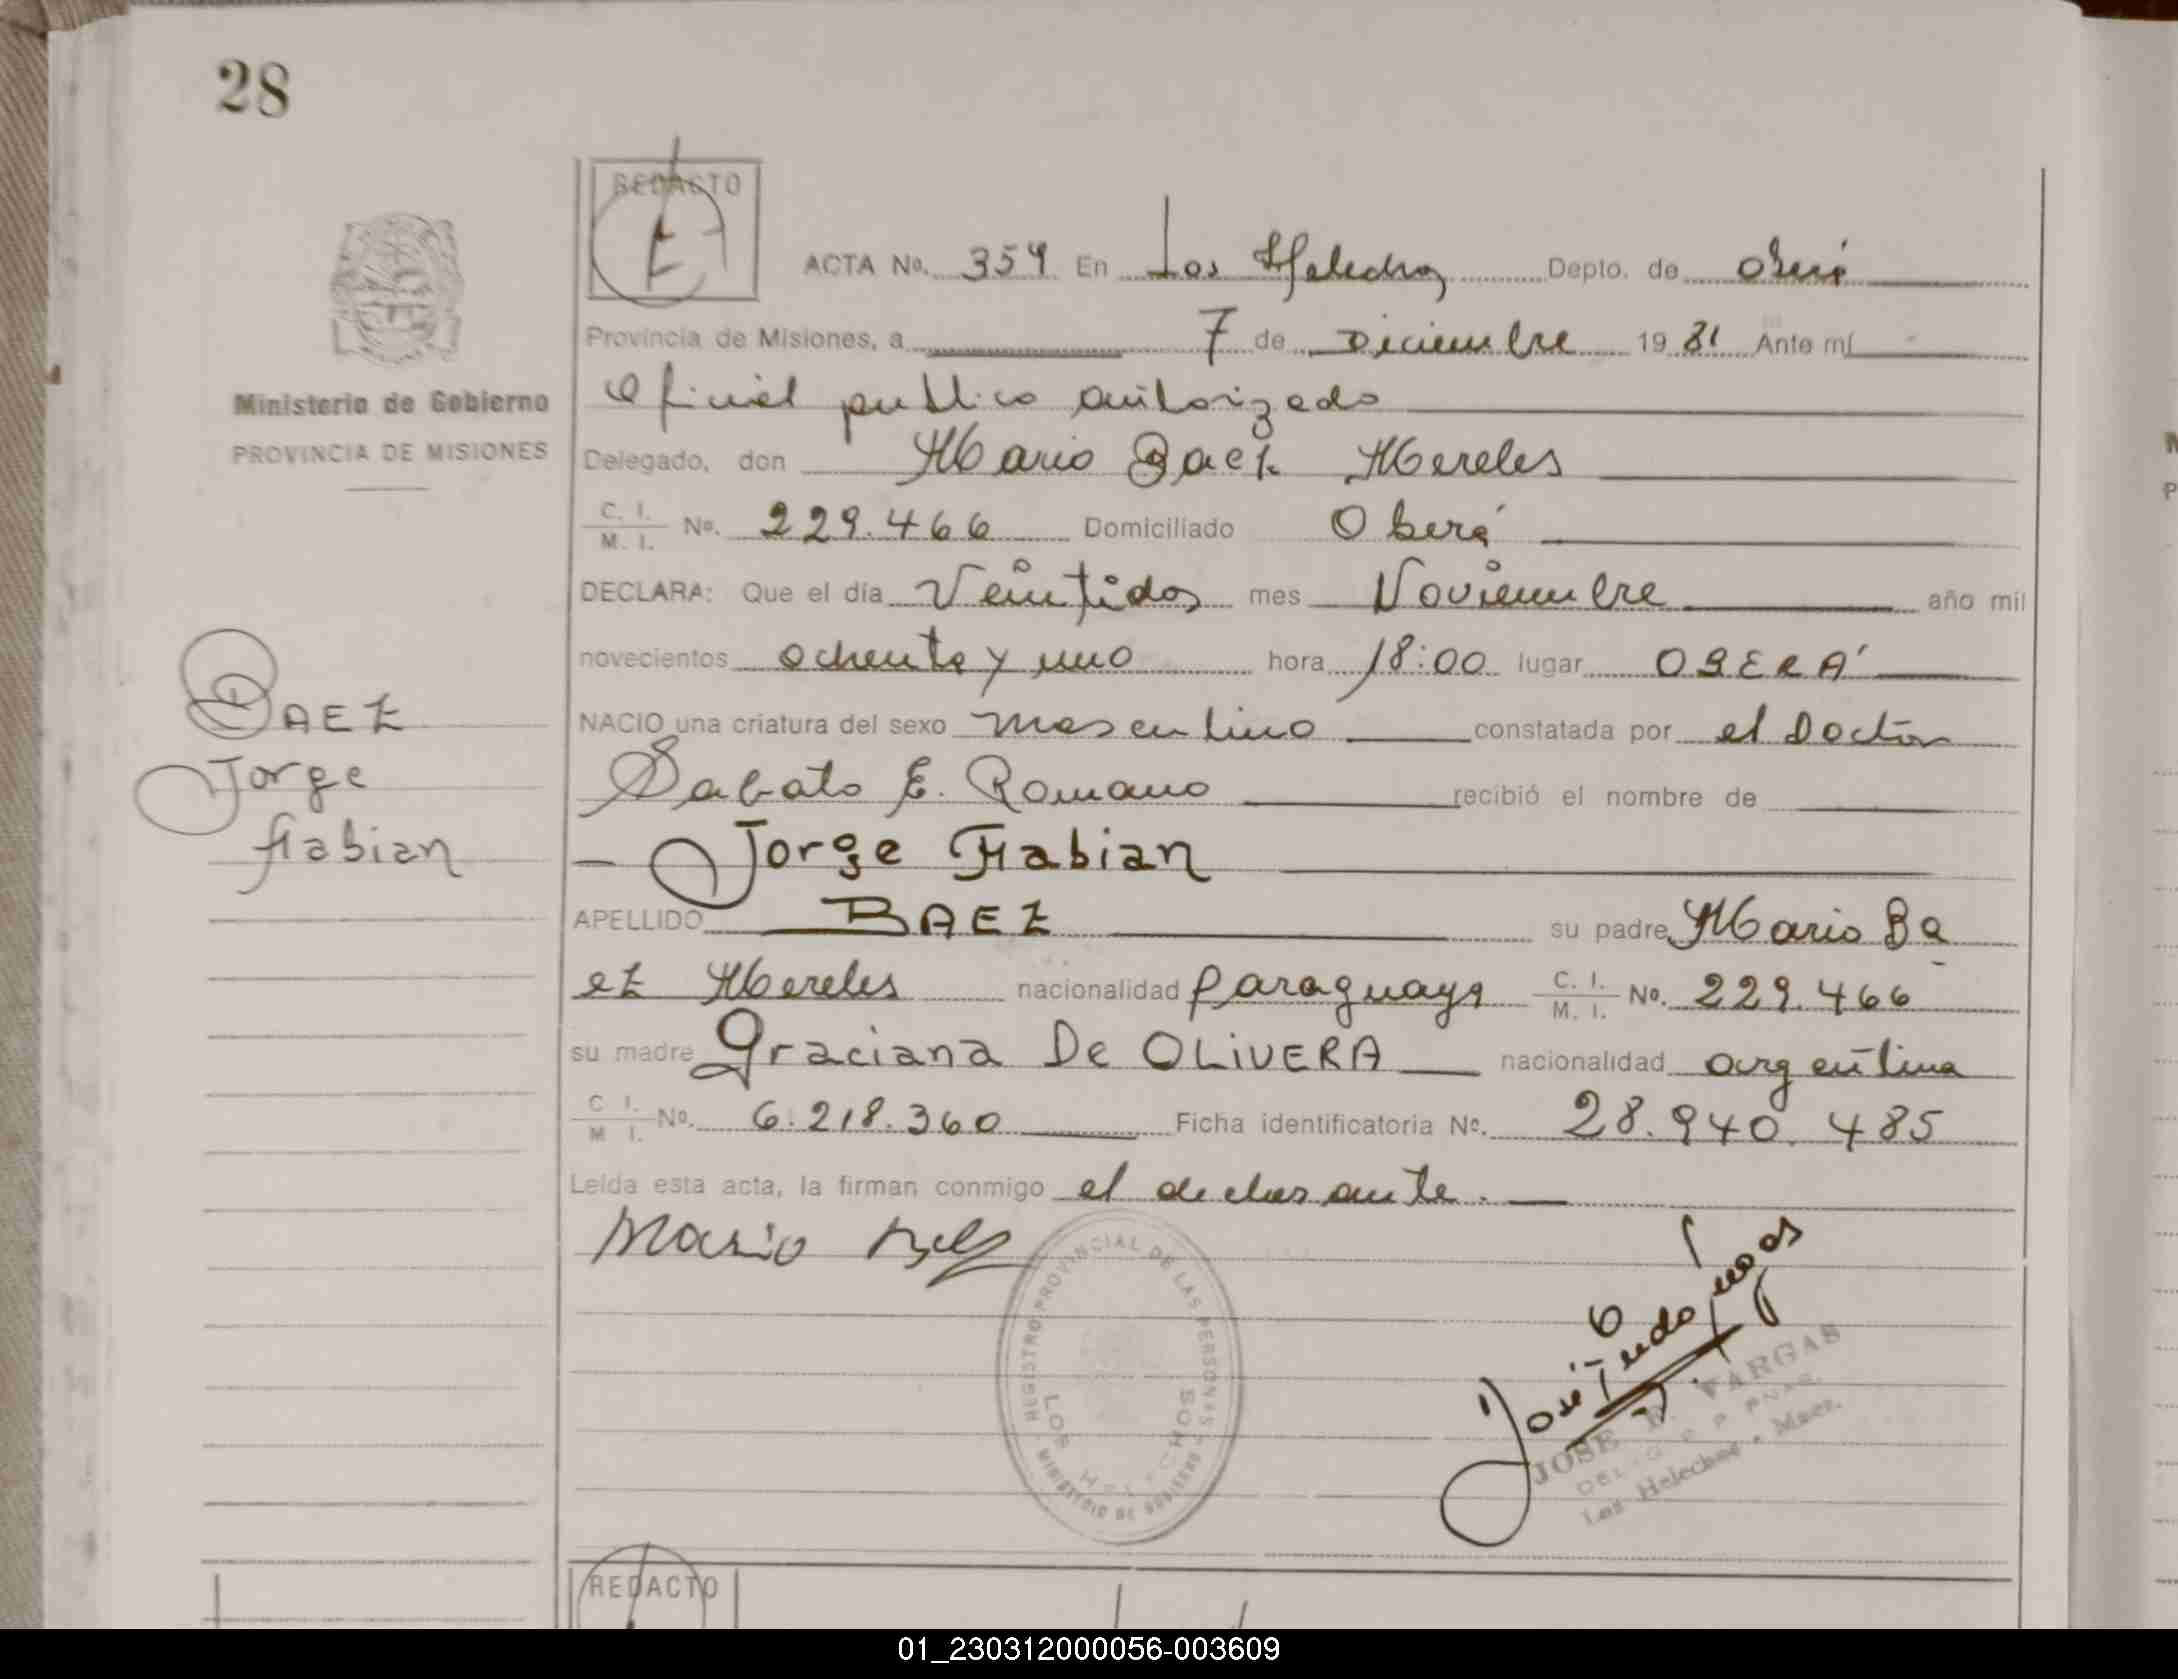 28
REDACTO
ACTA No. 354 En Los Helechos Depto. de Oberá
Provincia de Misiones, a 7 de Diciembre 1981 Ante mí
Oficial publico autorizado
Ministerio de Gobierno
PROVINCIA DE MISIONES
Delegado, don Mario Baez Mereles
C. I.
M. I. No. 229.466 Domiciliado Oberá
DECLARA: Que el día Veintidos mes Noviembre año mil
novecientos ochenta y uno hora 18:00 lugar OBERÁ
BAEZ
Jorge
Fabian
NACIO una criatura del sexo masculino constatada por el Doctor
Sabato E. Romano recibió el nombre de
Jorge Fabian
APELLIDO BAEZ su padre Mario Ba
ez Mereles nacionalidad Paraguaya C. I.
M. I. No. 229.466
su madre Graciana De OLiVERA nacionalidad argentina
C. I.
M. I. No. 6.218.360 Ficha identificatoria No. 28.940.485
Leida esta acta, la firman conmigo el declarante.
Mario
REGISTRO PROVINCIAL DE LAS PERSONAS
MINISTERIO DE GOBIERNO
LOS HELECHOS
JOSE VARGAS
Los Helechos - Mnes.
REDACTO
01_230312000056-003609